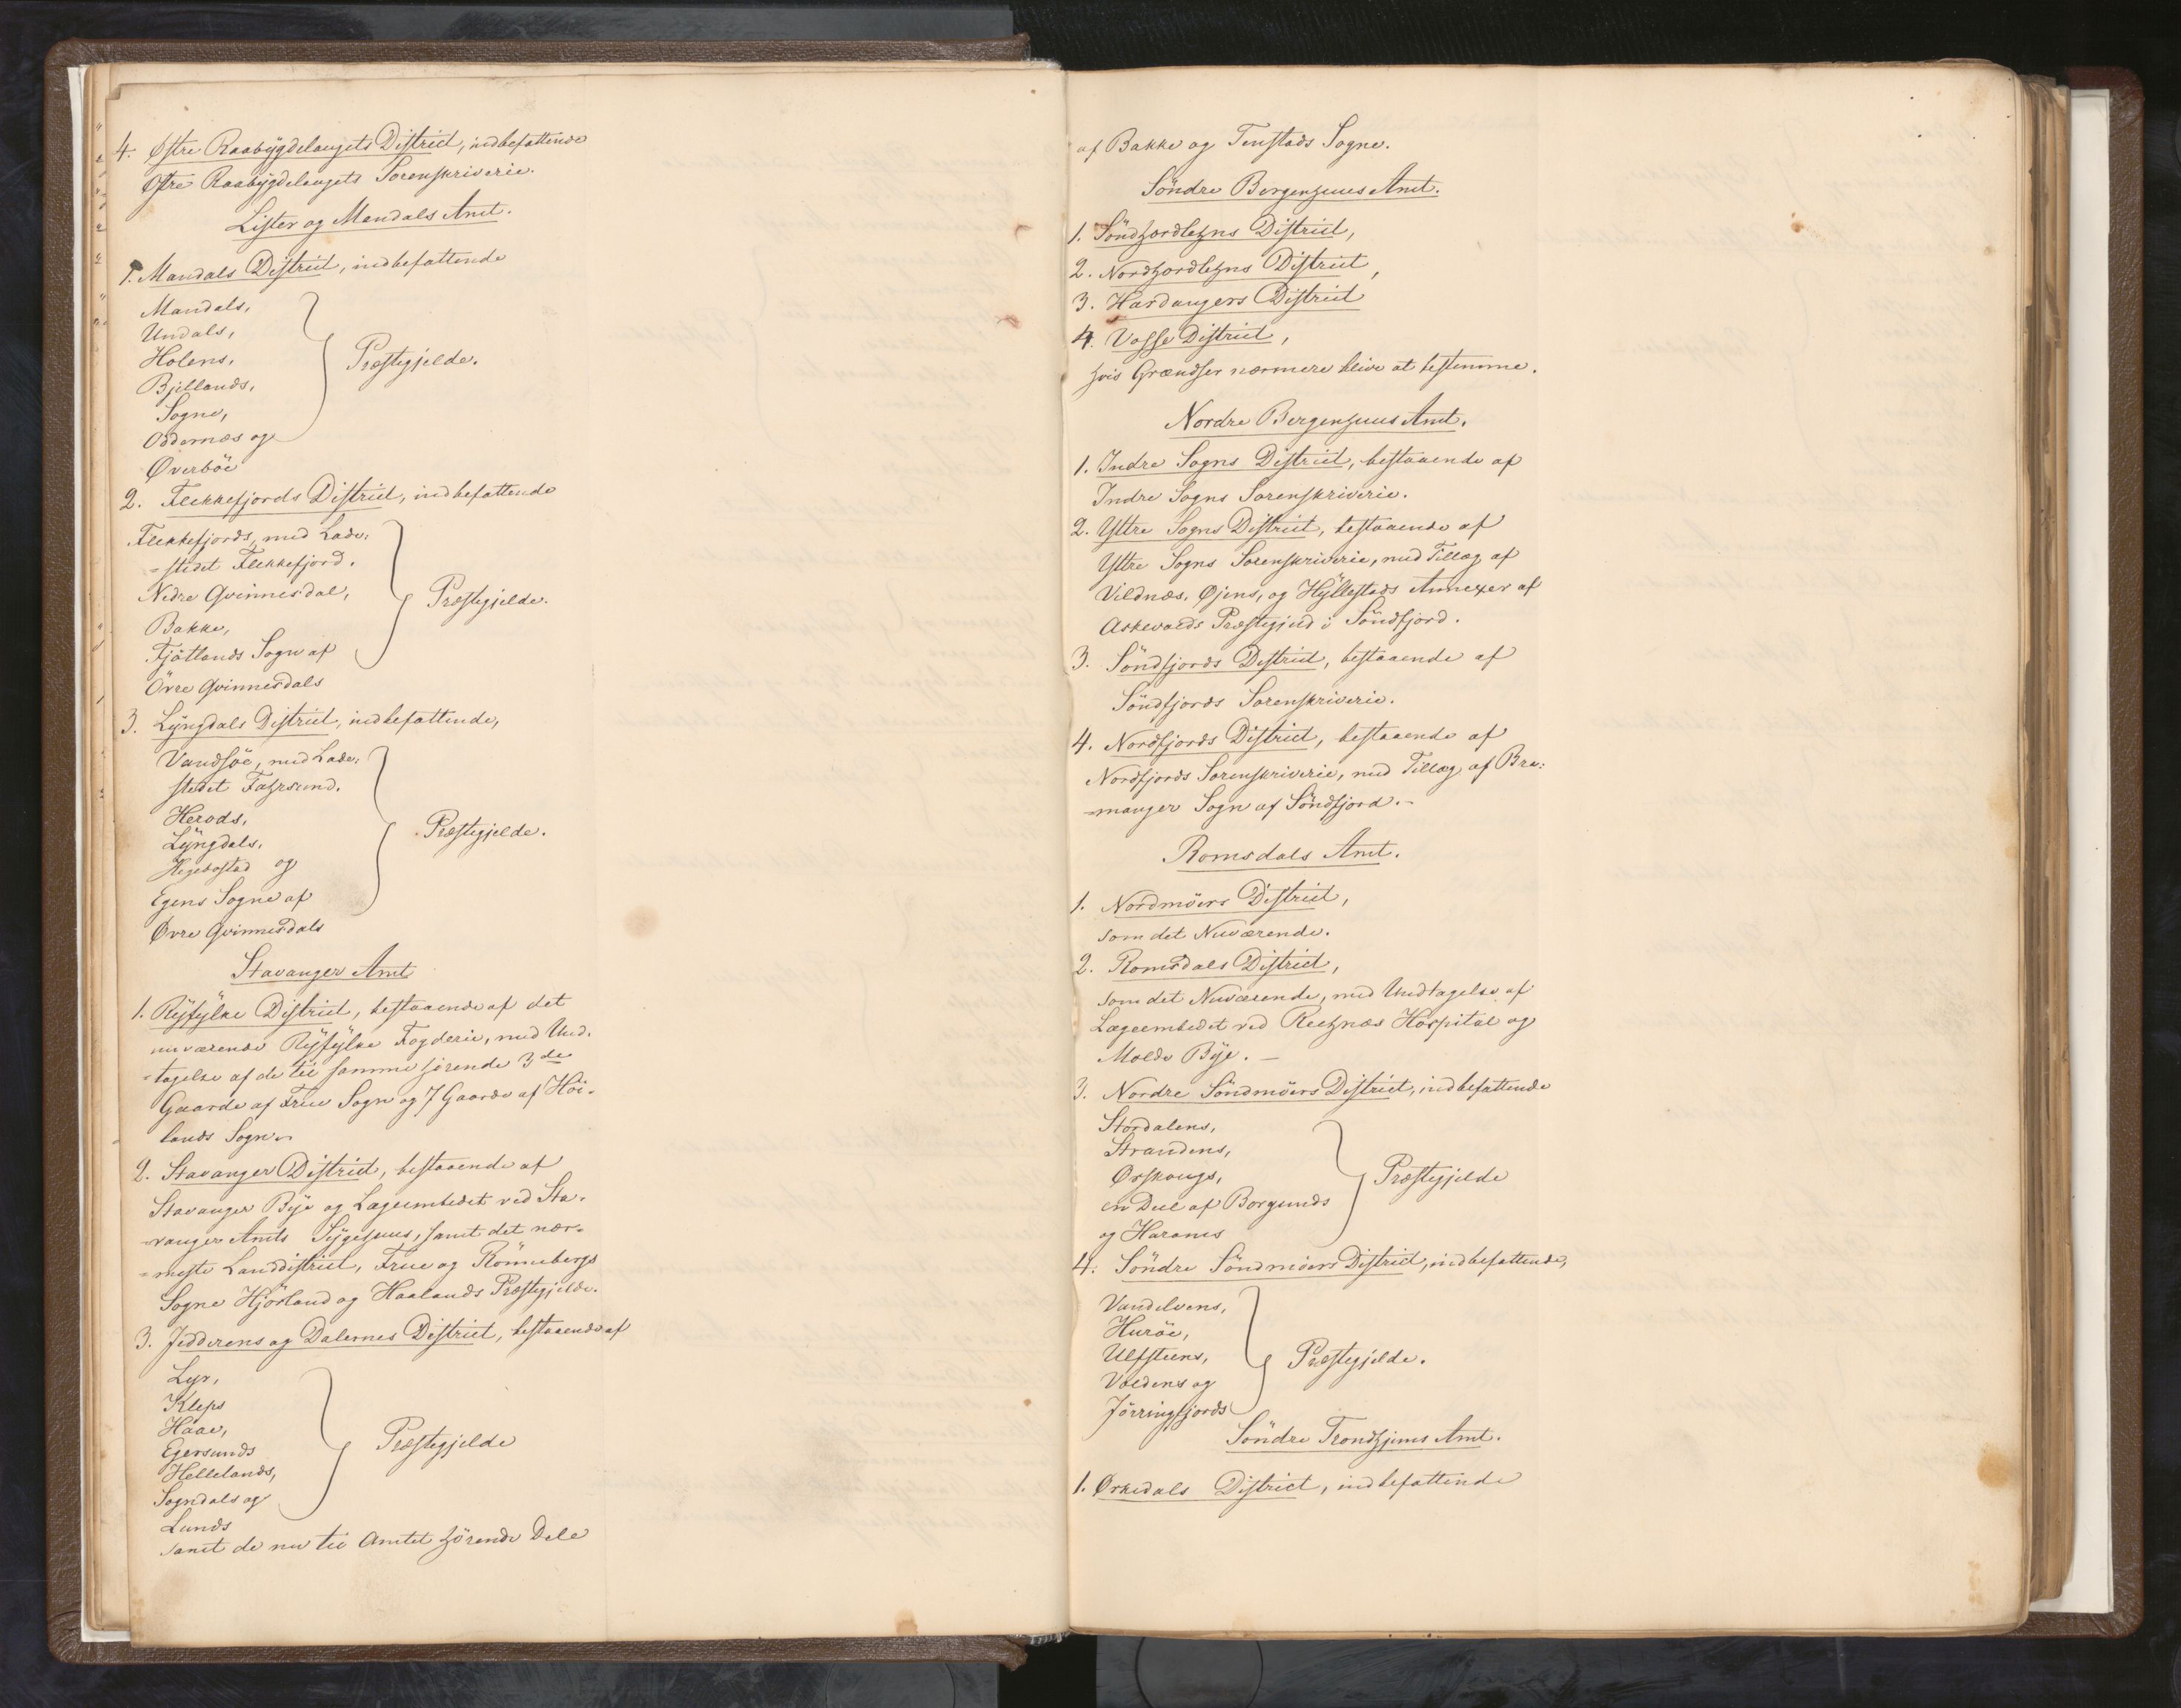 4. Østre Raabÿgdelaugets District, indbefattende
Østre Raabÿgdelaugets Sorenskriverie.
Lister og Mandals Amt.
1. Mandals District, indbefattende
Mandals,
Undals,
Holens,
Bjellands,
Sogne,
Oddernæs og
Øverböe
Præstegjelde.
2. Flekkefjords District, indbefattende
Flekkefjords, med Lade=
=stedet Flekkefjord.
Nedre Qvinnesdal,
Bakke,
Fjötlands Sogn af
Övre Qvinnesdals
Præstegjelde.
3. Lÿngdals District, indbefattende,
Vandsöe, med Lade=
stedet Fahrsund.
Herods,
Lÿngdals,
Hegebostad og
Egens Sogne af
Øvre Qvinnesdals
Præstegjelde.
Stavanger Amt
1. Rÿfÿlke District, bestaaende af det
nuværende Rÿfÿlke Fogderie, med Und=
=tagelse af de til samme hörende 3de
Gaarde af Frue Sogn og 7 Gaarde af Höi=
lands Sogn.
2. Stavanger District, bestaaende af
Stavanger Bÿe og Lægeembedet ved Sta=
=vanger Amts Sÿgehuus, samt det nær=
=meste Landdistrict, Frue og Rönnebergs
Sogne Hjörland og Haalands Præstegjelde.
3. Jedderens og Dalernes District, bestaaende af
Lyr,
Kleps
Haae,
Egersunds
Hellelands,
Sogndals og
Lunds
Præstegjelde
samt de nu til Amtet hörende Dele
af Bakke og Tenstads Sogne.
Söndre Bergenhuus Amt.
1. Söndhordlehns District,
2. Nordhordlehns District,
3. Hardangers District
4. Vosse District,
hvis Grændser nærmere blive at bestemme.
Nordre Bergenhuus Amt.
1. Indre Sogns District, bestaaende af
Indre Sogns Sorenskriverie.
2. Yttre Sogns District, bestaaende af
Yttre Sogns Sorenskriverie, med Tillæg af
Vildnæs, Øjens, og Hÿllestads Annexer af
Askevolds Præstegjeld i Söndfjord.
3. Söndfjords District, bestaaende af
Söndfjords Sorenskriverie.
4. Nordfjords District, bestaaende af
Nordfjords Sorenskriverie, med Tillæg af Bre=
=manger Sogn af Söndfjord.-
Romsdals Amt.
1. Nordmöers District,
som det Nuværende.
2. Romsdals District,
som det Nuværende, med Undtagelse af
Lægeembedet ved Reehnæs Hospital og
Molde Bÿe. -
3. Nordre Söndmöers District, indbefattende
Stordalens,
Strandens,
Ørskougs,
en Deel af Borgunds
og Harams
Præstegjelde
4. Söndre Söndmöers District, indbefattende,
Vandelvens,
Huröe,
Ulfsteens,
Voldens og
Jörringfjords
Præstegjelde.
Söndre Trondhjems Amt.
1. Örkedals District, indbefattende